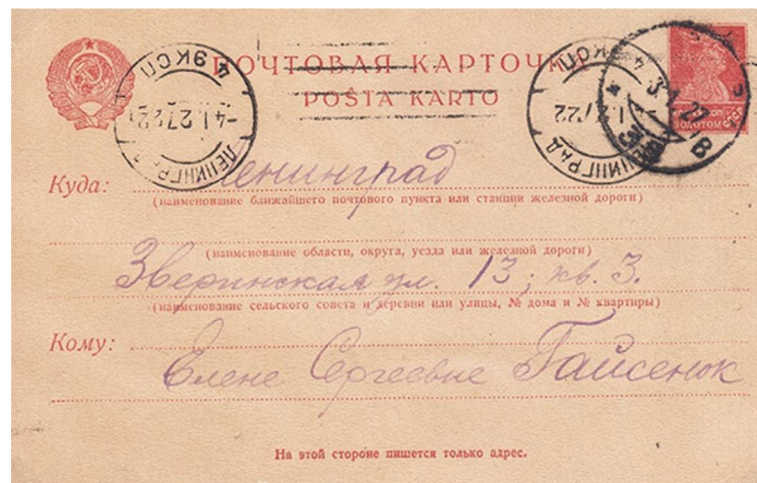 ПОЧТОВАЯ КАРТОЧКА
POŜTA KARTO
4 ЭКСП
-4.1.27 22
ЛЕНИНГРАД
4 ЭКСП
1.27 22
ЛЕНИНГРАД
3.1.27
ЗОЛОТОМ
Куда: Ленинград
(наименование ближайшего почтового пункта или станции железной дороги)
(наименование области, округа, уезда или железной дороги)
Зверинская ул. 13; кв. 3.
(наименование сельского совета и деревни или улицы, № дома и № квартиры)
Кому:
Елене Сергеевне Гайсенюк
На этой стороне пишется только адрес.